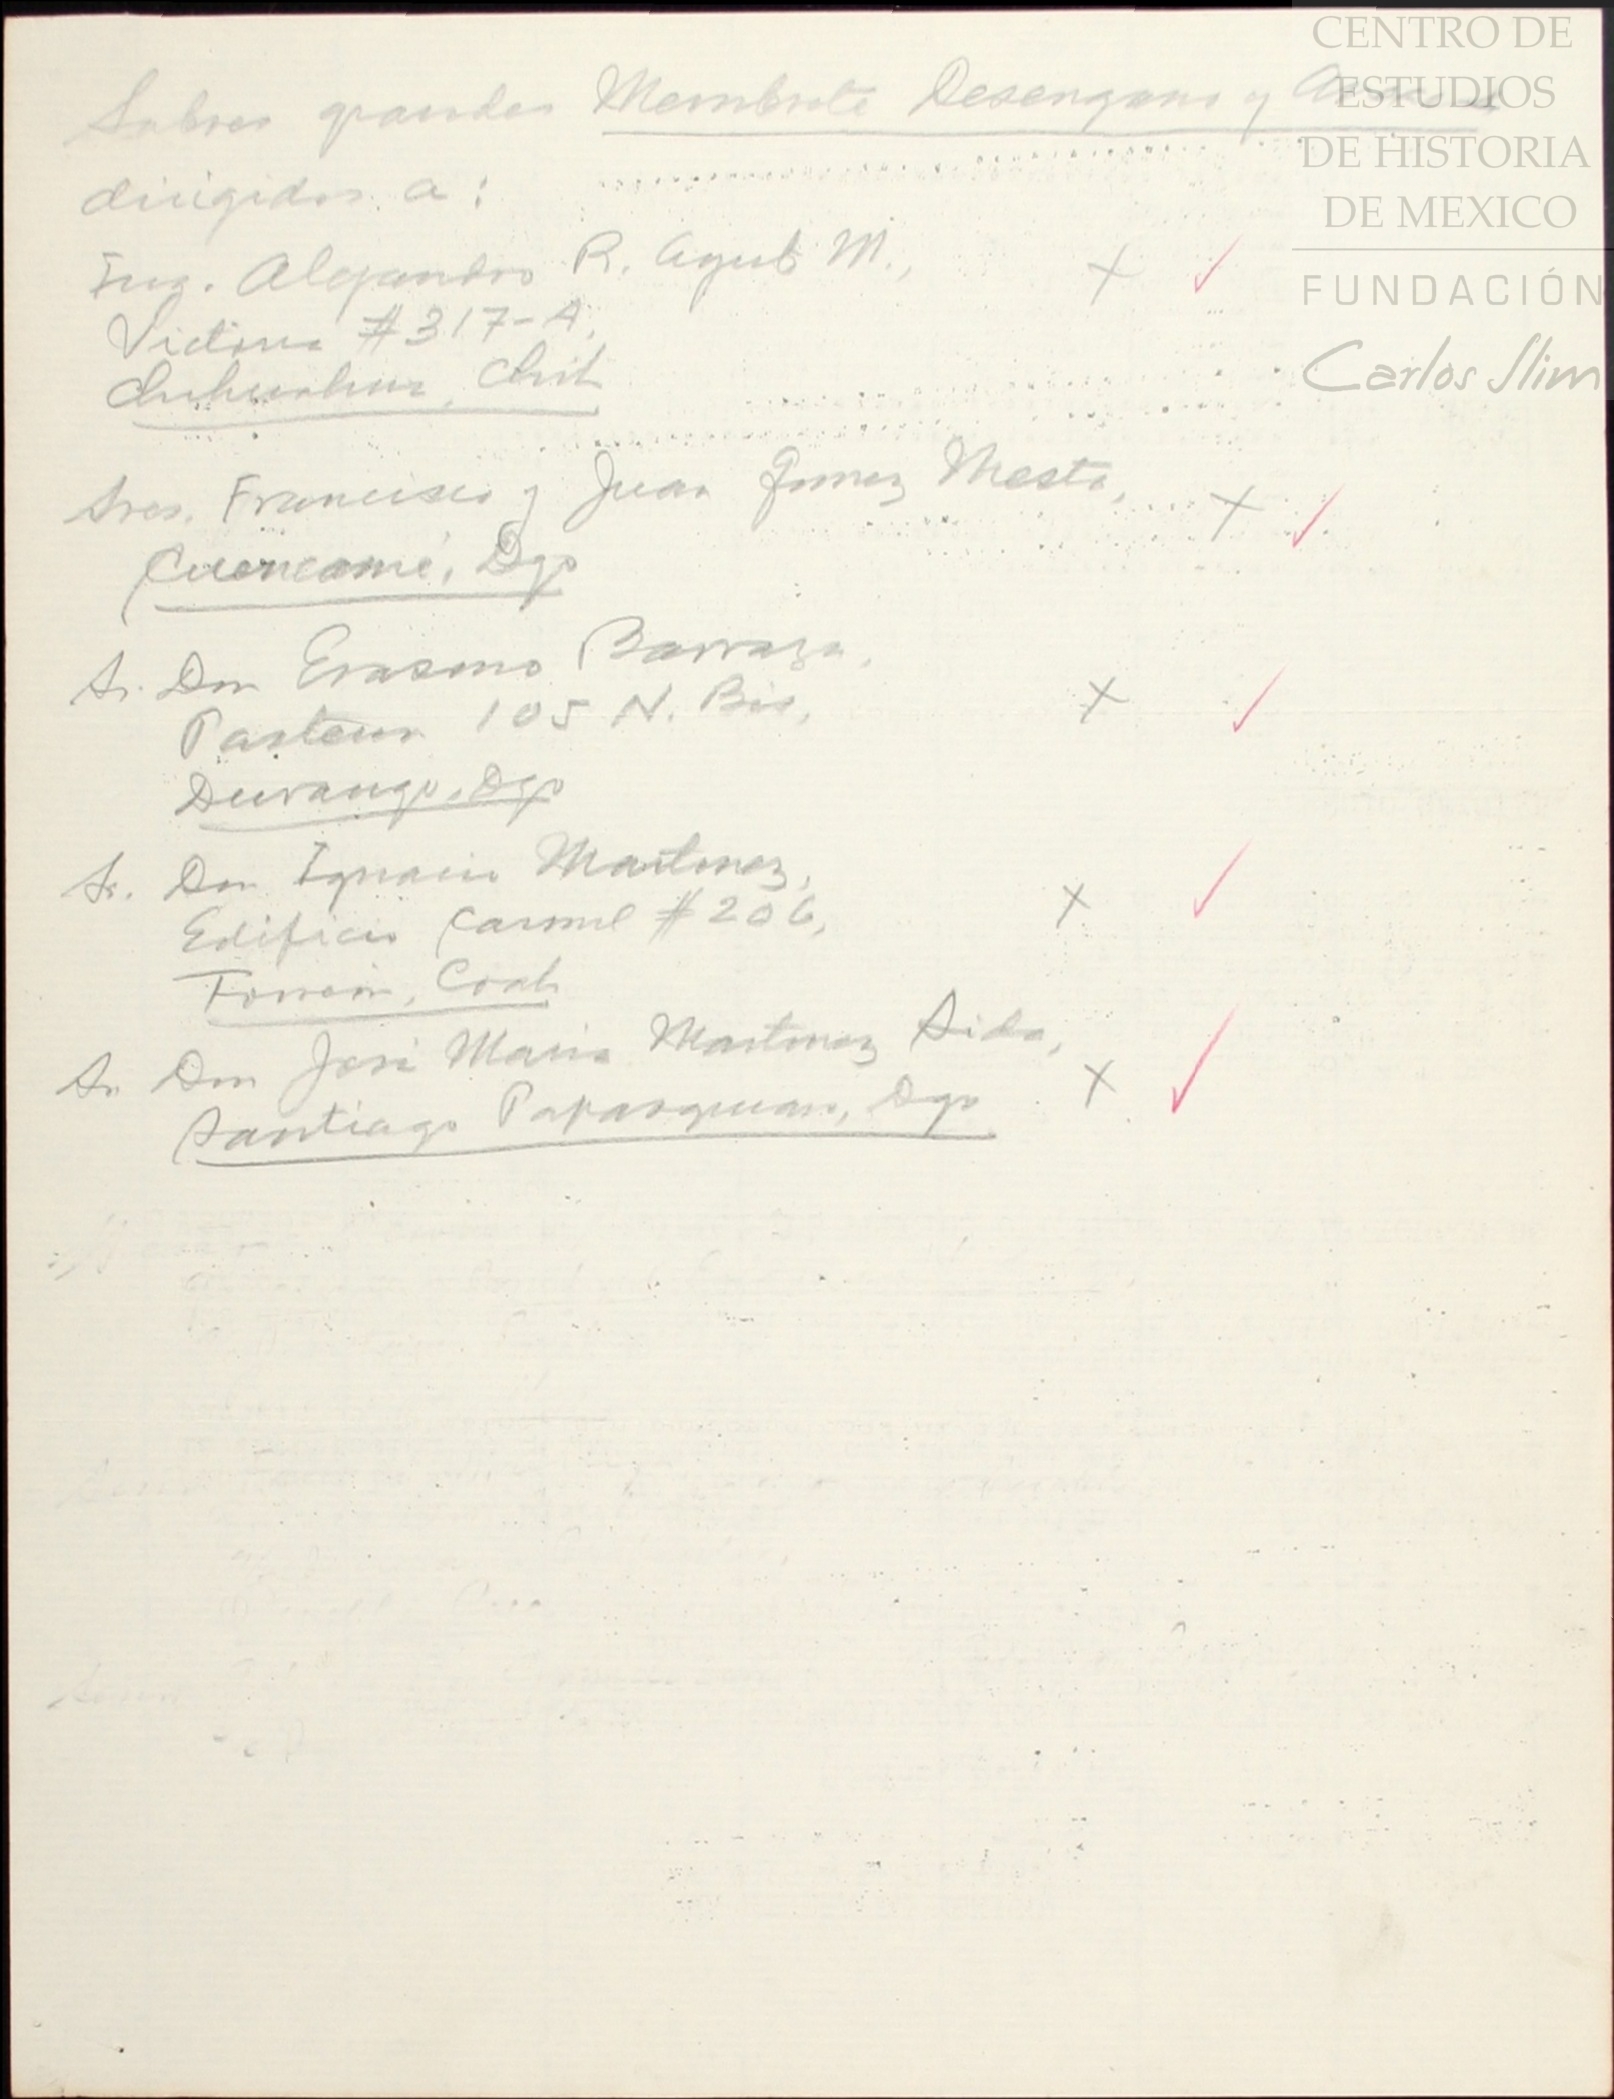 Sobres grandes Membrete Desengaño y
dirigidos a:
Ing. Alejandro R. M.,
Victoria #317-A,
Chihuahua, Chih
Sres. Francisco y Juan Gomez Mesta,
Cuencamé, Dgo
Sr. Don Erasmo Barraza,
Pasteur 105 N. Bis,
Durango, Dgo
Sr. Don Ignacio Martinez,
Edificio #206,
Torreón, Coah
Sr Don José Maria Martinez
Santiago Papasquiaro, Dgo
CENTRO DE
ESTUDIOS
DE HISTORIA
DE MEXICO
FUNDACIÓN
Carlos Slim